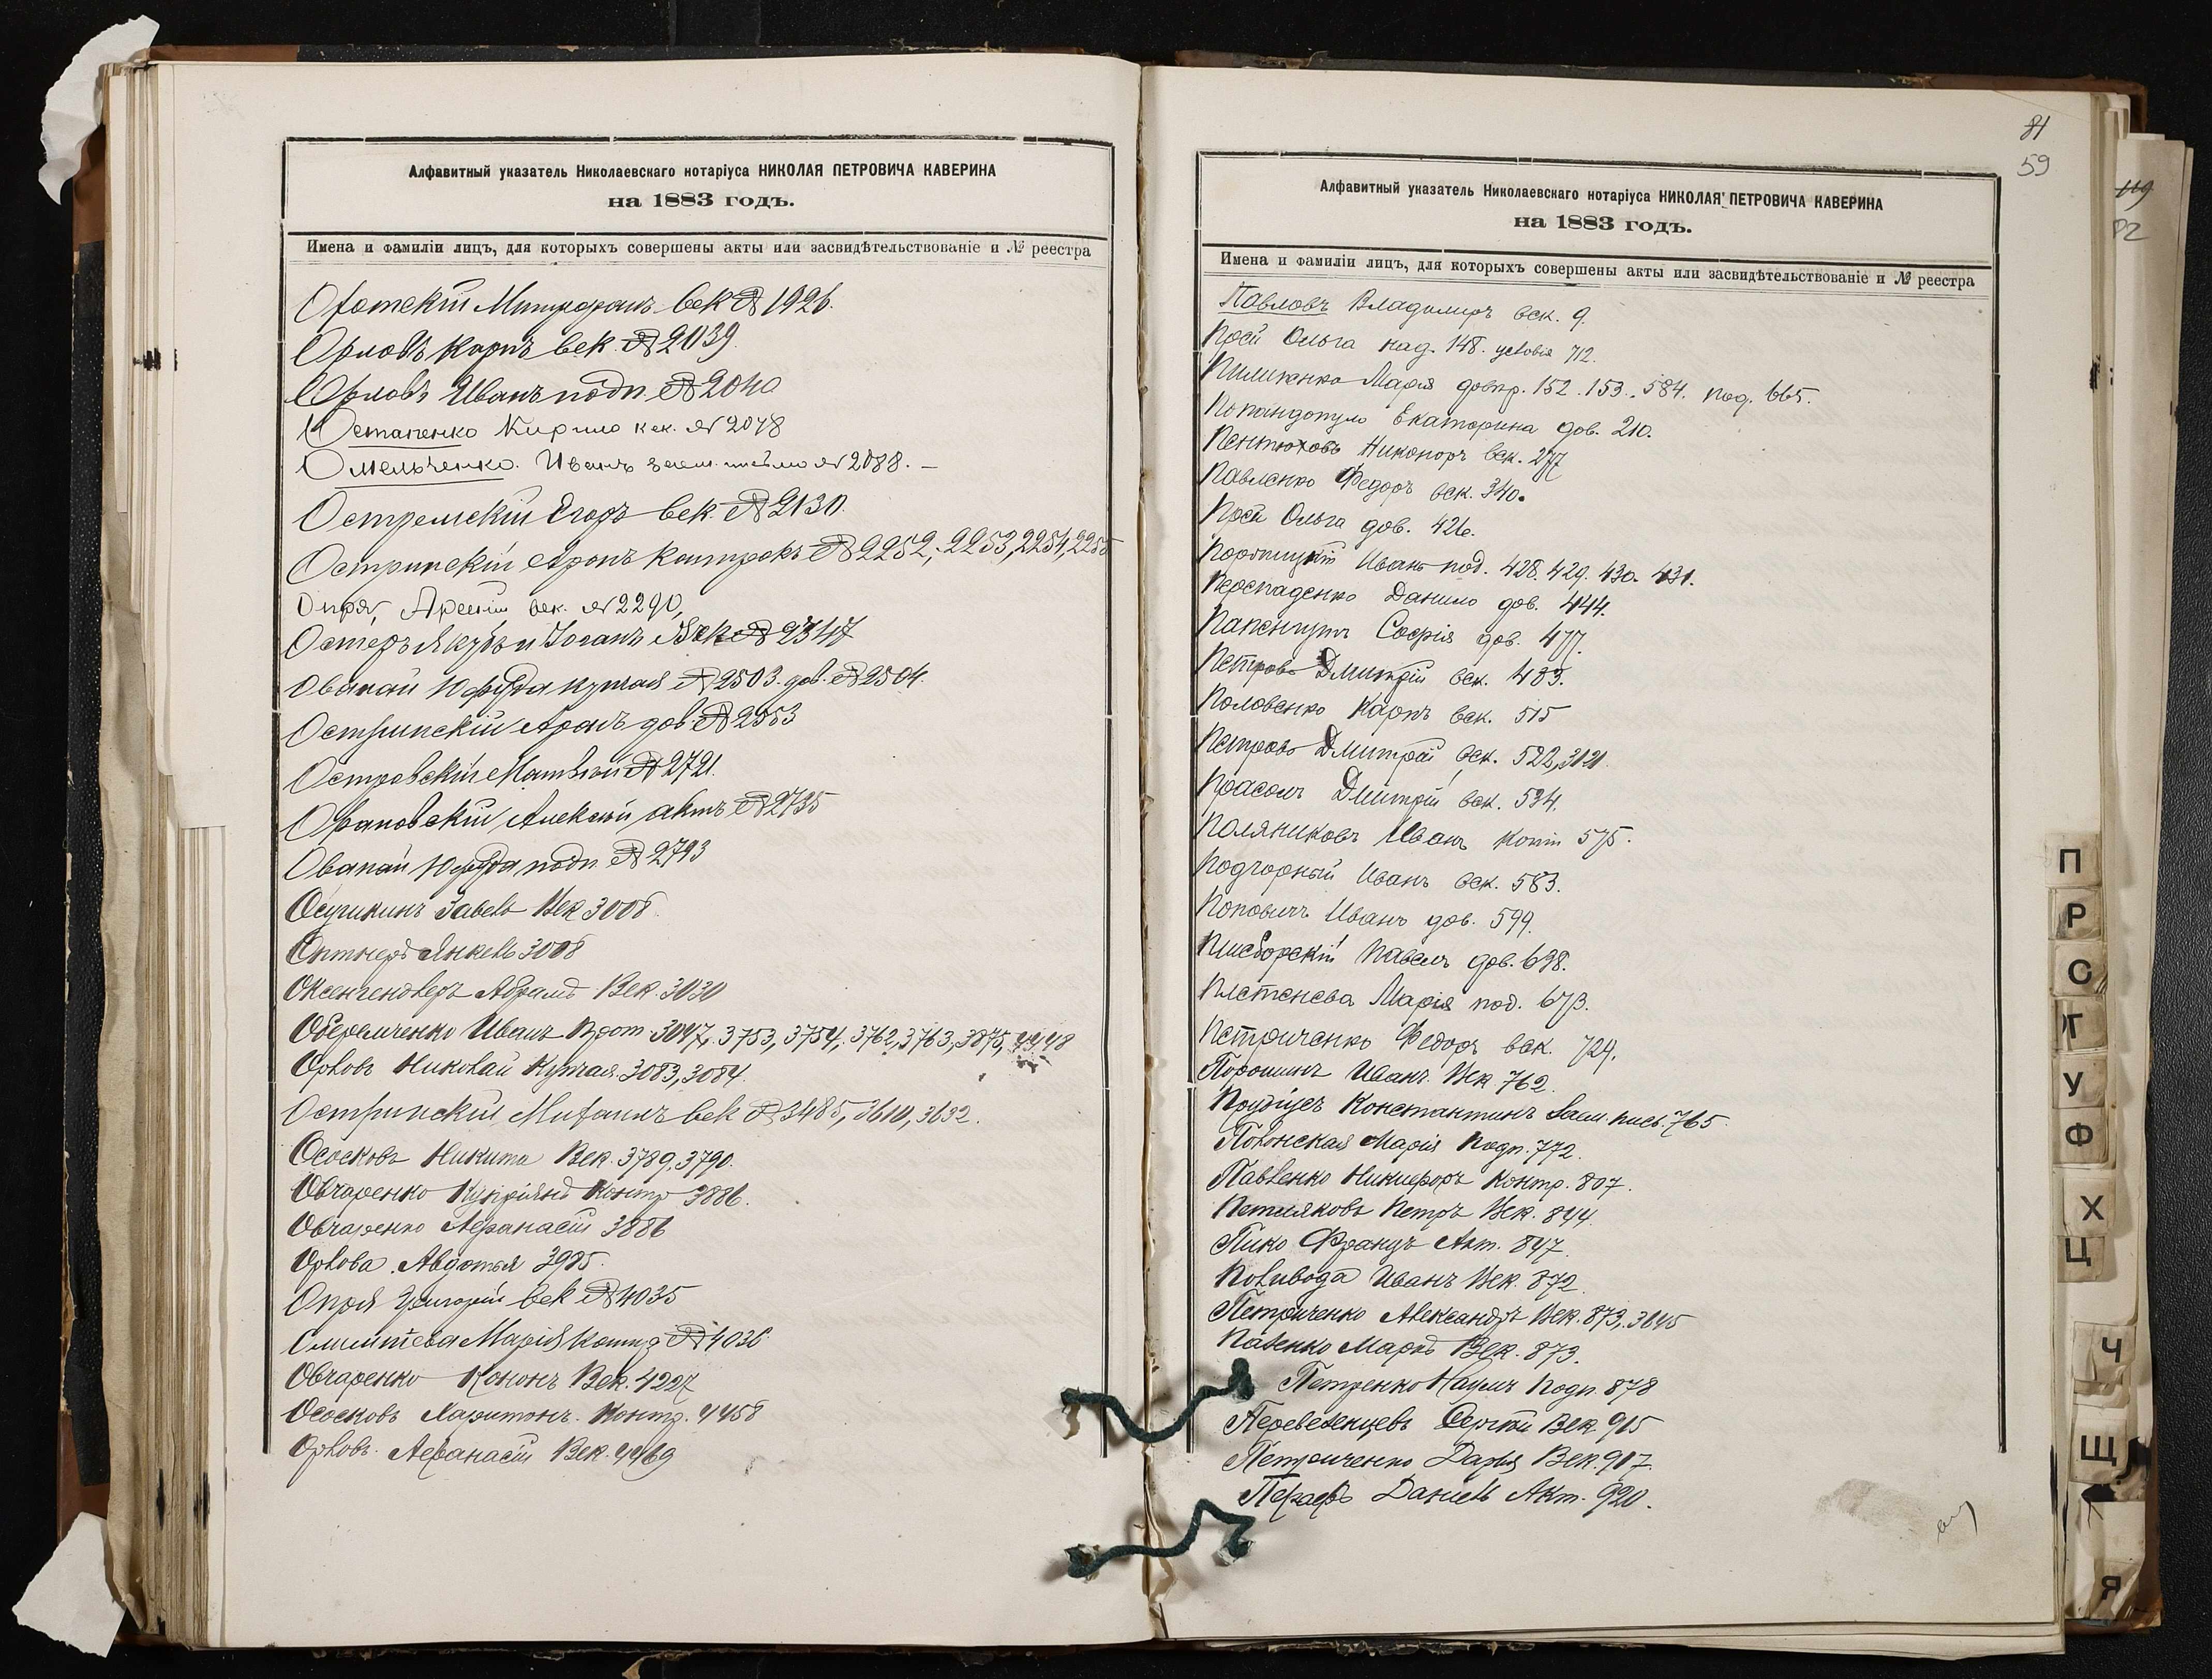 Алфавитный указатель Николаевскаго нотаріуса НИКОЛАЯ ПЕТРОВИЧА КАВЕРИНА
на 1883 годъ.
Имена и фамиліи лицъ, для которыхъ совершены акты или засвидѣтельствованіе и № реестра
Митрофанъ век № 1926.
Орловъ Карпъ век. № 2039.
Орловъ Иванъ подп. № 2040
Остапенко Кирило век. № 2078
Омельченко Иванъ заем. письмо № 2088. –
Егоръ век. № 2130.
Остринскій Аронъ Контрактъ № 2252, 2253, 2254, 2255
Опря, Арсеній век. № 2290,
Остеръ Якубъ и Іоганъ Век № 2347
Овапай Юфуда купчая № 2503. дов. № 2504.
Остринскій Аронъ дов. № 2553
Островскій Матвѣй № 2721.
Алексѣй, актъ № 2735
Овапай Юфуда подп. № 2793
Век 3008.
Янкель 3008
Оксенгендлеръ Абрамъ Век. 3030
Иванъ Прот. 3047, 3753, 3754, 3762, 3763, 3875, 4448
Орловъ Николай Купчая. 3083, 3084.
Остринскій Михаилъ век № 3485, 3610, 3632.
Ососковъ Никита Век. 3789, 3790.
Овчаренко Купріянъ Контр 3886.
Овчаренко Афанасій 3886
Орлова Авдотья 3985.
Опря Григорій век № 4035
Марія Контр № 4036
Овчаренко Кононъ Век. 4227
Ососковъ Харитонъ. Контр. 4458
Орловъ Афанасій Век. 4469
81
59
Алфавитный указатель Николаевскаго нотаріуса НИКОЛАЯ ПЕТРОВИЧА КАВЕРИНА
на 1883 годъ.
Имена и фамиліи лицъ, для которыхъ совершены акты или засвидѣтельствованіе и № реестра
Павловъ Владимиръ век. 9.
Ольга над. 148. условія 712.
Пилипенко Марія довѣр. 152. 153. 584. под. 665.
Попандопуло Екатерина дов. 210.
Пентюховъ Никоноръ век. 277
Павленко Федоръ век. 340.
Ольга дов. 426.
Иванъ под. 428. 429. 430. 431.
Перепаденко Данило дов. 444.
Софія дов. 477.
Петровъ Дмитрій век. 483.
Половенко Карпъ век. 515
Петровъ Дмитрій век. 522, 3121
Прасолъ Дмитрій век. 534.
Поляниковъ Иванъ конт 575.
Подгорный Иванъ век. 583.
Поповичъ Иванъ дов. 599.
Павелъ дов. 698.
Плетенева Марія под. 673.
Петриченко Федоръ век. 729.
Порошинъ Иванъ. Век. 762.
Константинъ Заем. пис. 765.
Полонская Марія Подп. 772.
Павленко Никифоръ Контр. 807.
Петляковъ Петръ Век. 844.
Пико Францъ Акт. 847.
Поливода Иванъ Век. 872.
Петриченко Александръ Век. 873, 3645
Паленко Маркъ Век. 873.
Петренко Наумъ Подп. 878
Переведенцевъ Сергѣй Век 915
Петриченко Дарья Век. 917.
Даніель Акт. 920.
П
Р
С
Т
У
Ф
Х
Ц
Ч
Щ
Я